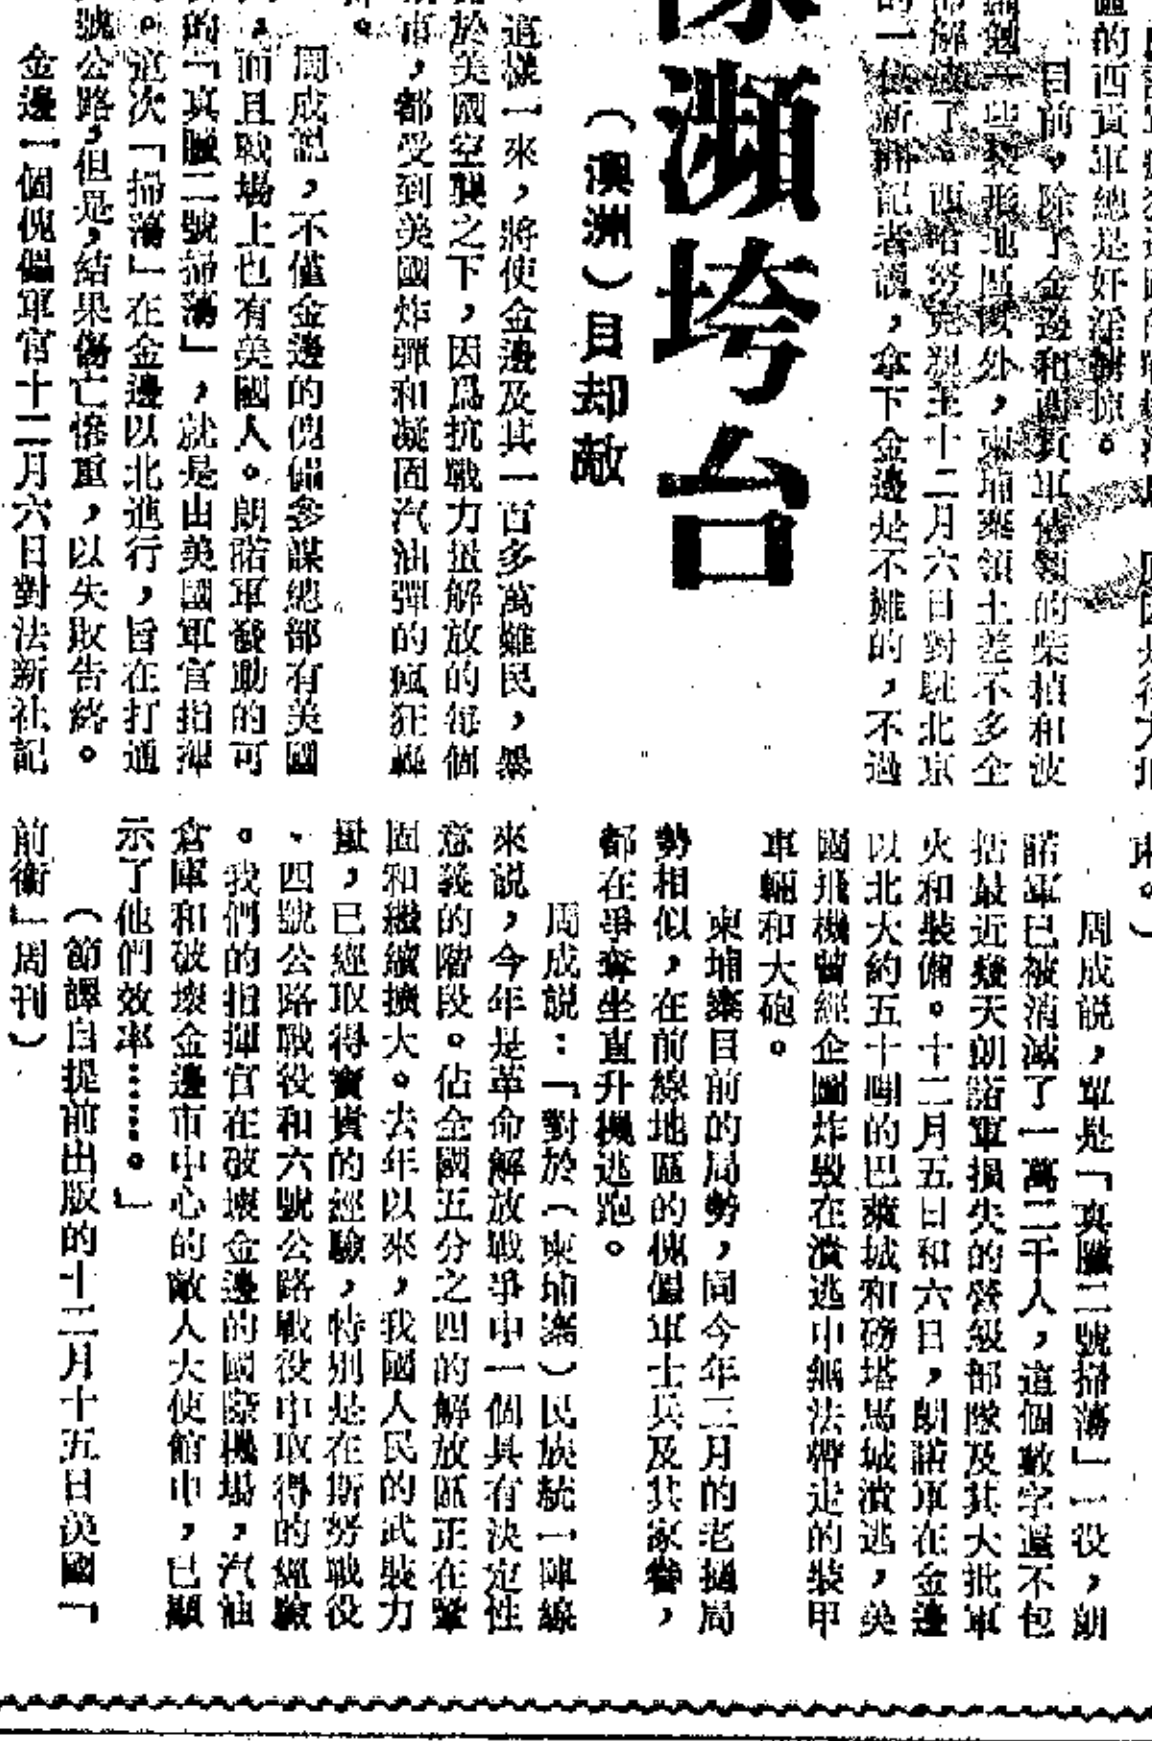 的西貢軍總是奸淫擄掠。
目前，除了金邊和軍佔領的柴楨和波
一些形地區以外，柬埔寨領土差不多全
解放了。西哈努克親王十二月六日對駐北京
的一位新聞記者說，拿下金邊是不難的，不過
瀕垮台
（澳洲）目却敵
這樣一來，將使金邊及其一百多萬難民，暴
於美國空襲之下，因爲抗戰力量解放的每個
市，都受到美國炸彈和凝固汽油彈的瘋狂轟
。
周成說，不僅金邊的傀儡參謀總部有美國
，而且戰場上也有美國人。朗諾軍發動的可
的「真臘二號掃蕩」，就是由美國軍官指揮
。這次「掃蕩」在金邊以北進行，旨在打通
號公路，但是，結果傷亡慘重，以失敗告終。
金邊一個傀儡軍官十二月六日對法新社記
。）
周成說，單是「真臘二號掃蕩」一役，朗
諾軍已被消滅了一萬二千人，這個數字還不包
括最近幾天朗諾軍損失的營級部隊及其大批軍
火和裝備。十二月五日和六日，朗諾軍在金邊
以北大約五十哩的巴萊城和磅塔馬城潰逃，美
國飛機曾經企圖炸毀在潰逃中無法帶走的裝甲
車輛和大砲。
柬埔寨目前的局勢，同今年三月的老撾局
勢相似，在前線地區的傀儡軍士兵及其家眷，
都在爭奪坐直升機逃跑。
周成說：「對於（柬埔寨）民族統一陣線
來說，今年是革命解放戰爭中一個具有決定性
意義的階段。佔全國五分之四的解放區正在鞏
固和繼續擴大。去年以來，我國人民的武裝力
量，已經取得寶貴的經驗，特別是在斯努戰役
、四號公路戰役和六號公路戰役中取得的經驗
。我們的指揮官在破壞金邊的國際機場，汽油
倉庫和破壞金邊市中心的敵人大使館中，已顯
示了他們效率……。」
（節譯自提前出版的十二月十五日美國「
前衛」周刊）